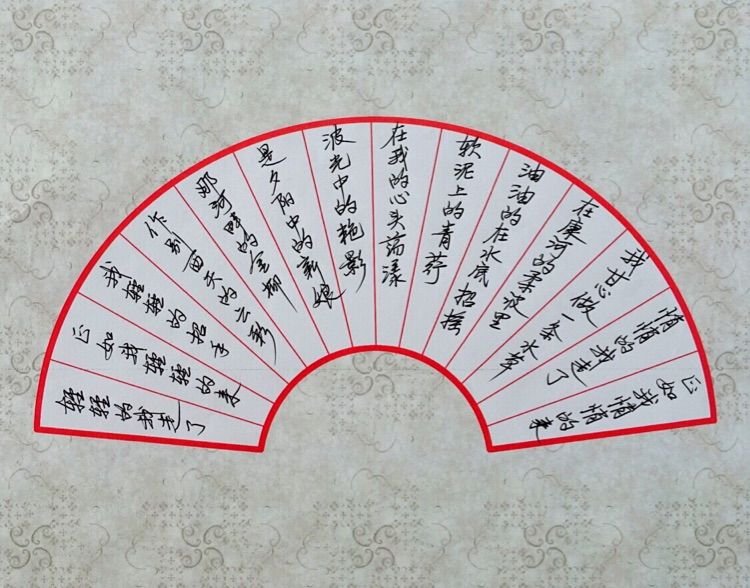 轻轻的我走了
正如我轻轻的来
我轻轻的招手
作别西天的云彩
那河畔的金柳
是夕阳中的新娘
波光中的艳影
在我的心头荡漾
软泥上的青荇
油油的在水底招摇
在康河的柔波里
我甘心做一条水草
悄悄的我走了
正如我悄悄的来